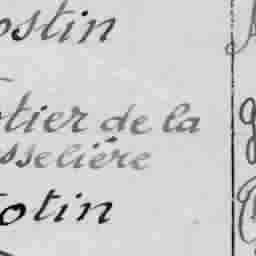 ostin
tier de la
sselière
otin